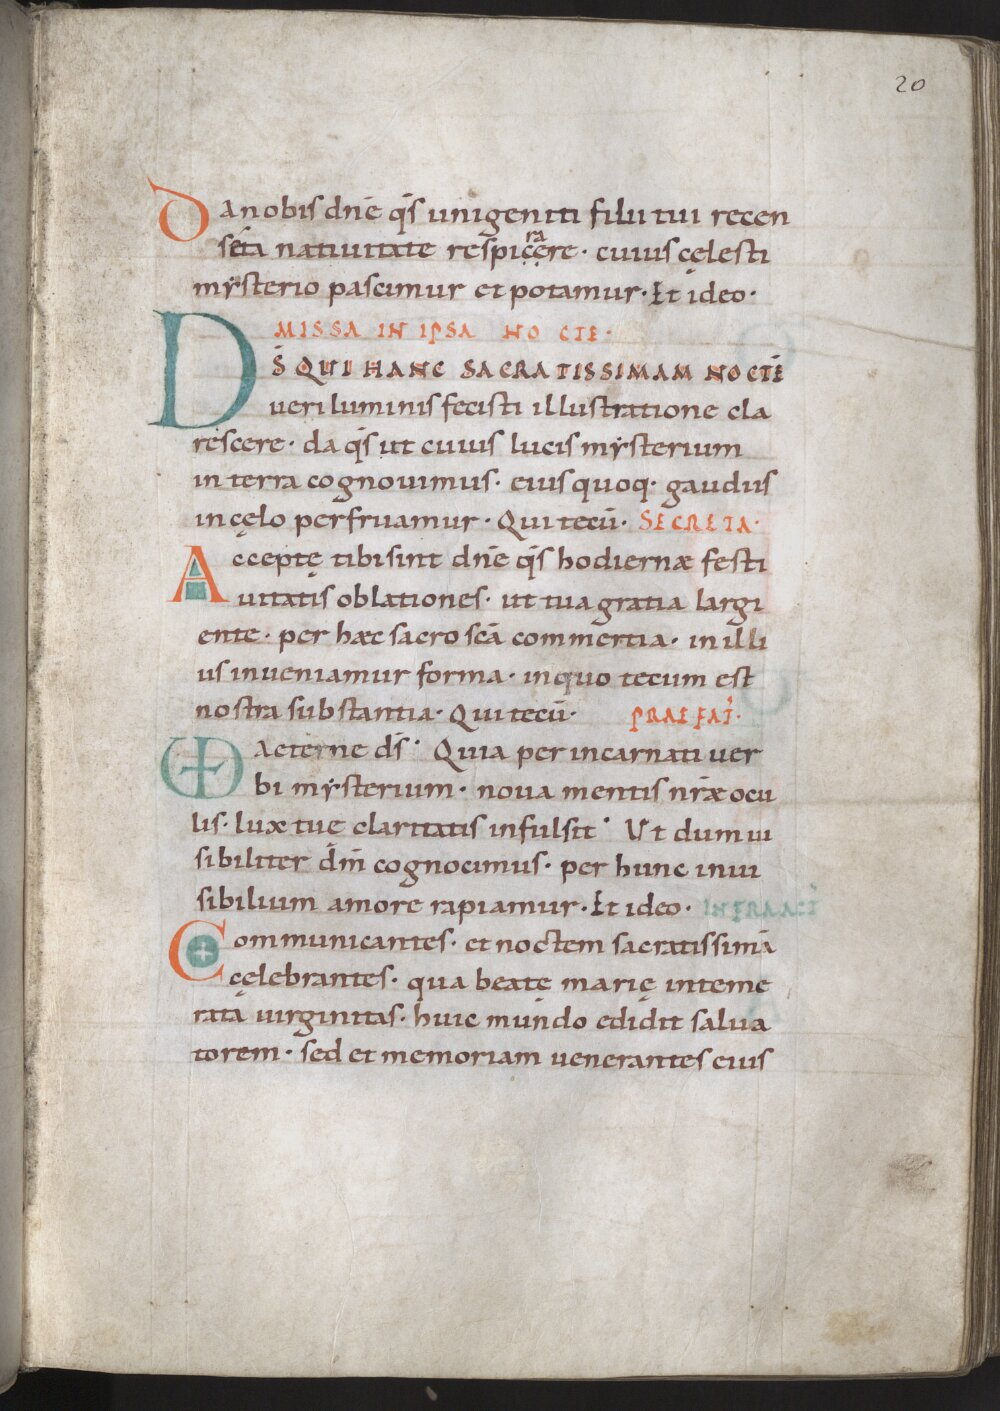 20
Da nobis dnē q̄s unigeniti filii tui recen
sēta natiuitate respicęre ra · cuius cęlesti
mẏsterio pascimur et potamur · Et ideo ·
MISSA IN IPSA NOCTE ·
DS̄ QUI HANC SACRATISSIMAM NOCTĒ
ueri luminis fecisti illustratione cla
rescere · da q̄s ut cuius lucis mẏsterium
in terra cognouimus · eius quoq· gaudiis
in cęlo perfruamur · Qui tecū · SECRETA ·
Acceptę tibi sint dnē q̄s hodiernæ festi
uitatis oblationes · ut tua gratia largi
ente · per hæc sacro scā commertia · in illi
us inueniamur forma · in quo tecum est
nostra substantia · Qui tecū · PRAEFAT̄ ·
VD Aeterne ds̄ · Quia per incarnati uer
bi mẏsterium · noua mentis nr̄æ ocu
lis · lux tuę claritatis infulsit · Ut dum ui
sibiliter dm̄ cognocimus · per hunc inui
sibilium amore rapiamur · Et ideo · INFRA ACT̄
Communicantes · et noctem sacratissimā
cęlebrantes · qua beatę marię inteme
rata uirginitas · huic mundo edidit salua
torem · sed et memoriam uenerantes eius